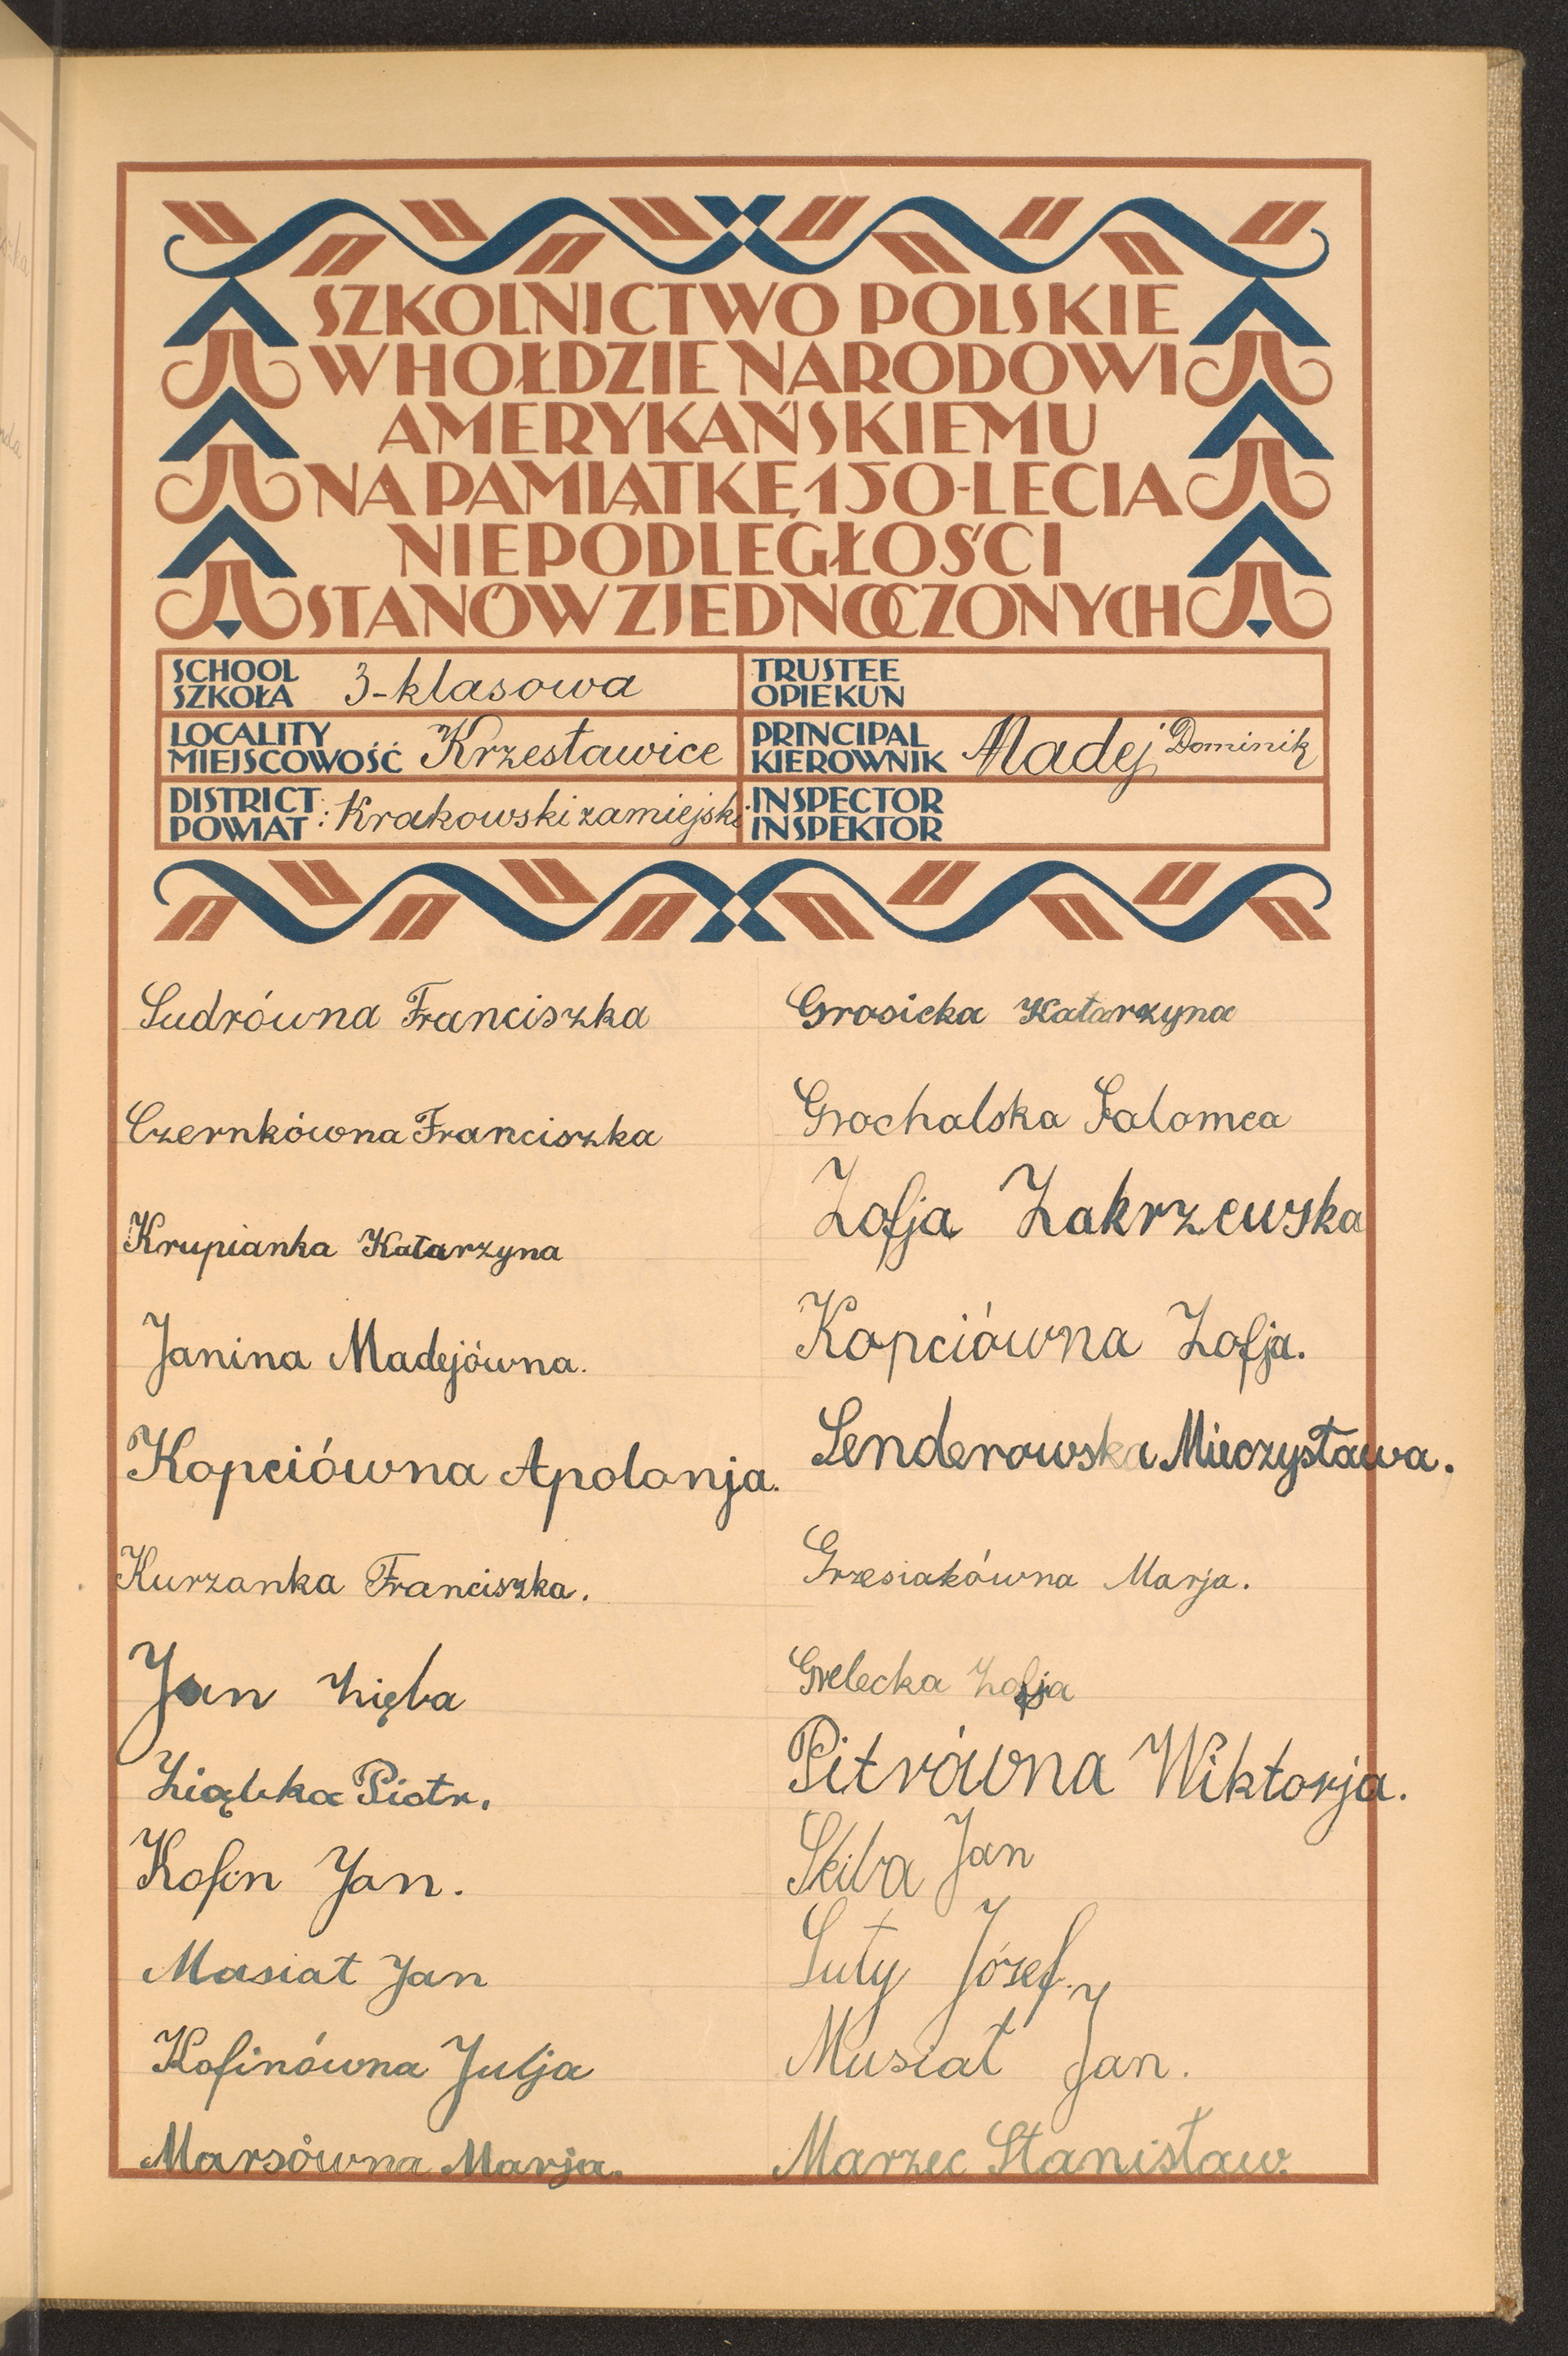 SZKOLNICTWO POLSKIE
W HOŁDZIE NARODOWI
AMERYKAŃSKIEMU
NA PAMIĄTKĘ 150-LECIA
NIEPODLEGŁOŚCI
STANÓW ZJEDNOCZONYCH
SCHOOL
SZKOŁA 3-klasowa
TRUSTEE
OPIEKUN
LOCALITY
MIEJSCOWOŚĆ Krzesławice
PRINCIPAL
KIEROWNIK Madej Dominik
DISTRICT
POWIAT : Krakowski zamiejski
INSPECTOR
INSPEKTOR
Sudrówna Franciszka
Czernkówna Franciszka
Krupianka Katarzyna
Janina Madejówna.
Kopciówna Apolonja.
Kurzanka Franciszka.
Jan Zięba
Ziąbka Piotr.
Kofin Jan.
Masiat Jan
Kofinówna Julja
Marsówna Marja.
Grosicka Katarzyna
Grochalska Salomea
Zofja Zakrzewska
Kopciówna Zofja.
Senderowska Mieczysława.
Grzesiakówna Marja.
Grelecka Zofja
Pitrówna Wiktorja.
Skiba Jan
Luty Józef.
Musiał Jan.
Marzec Stanisław.